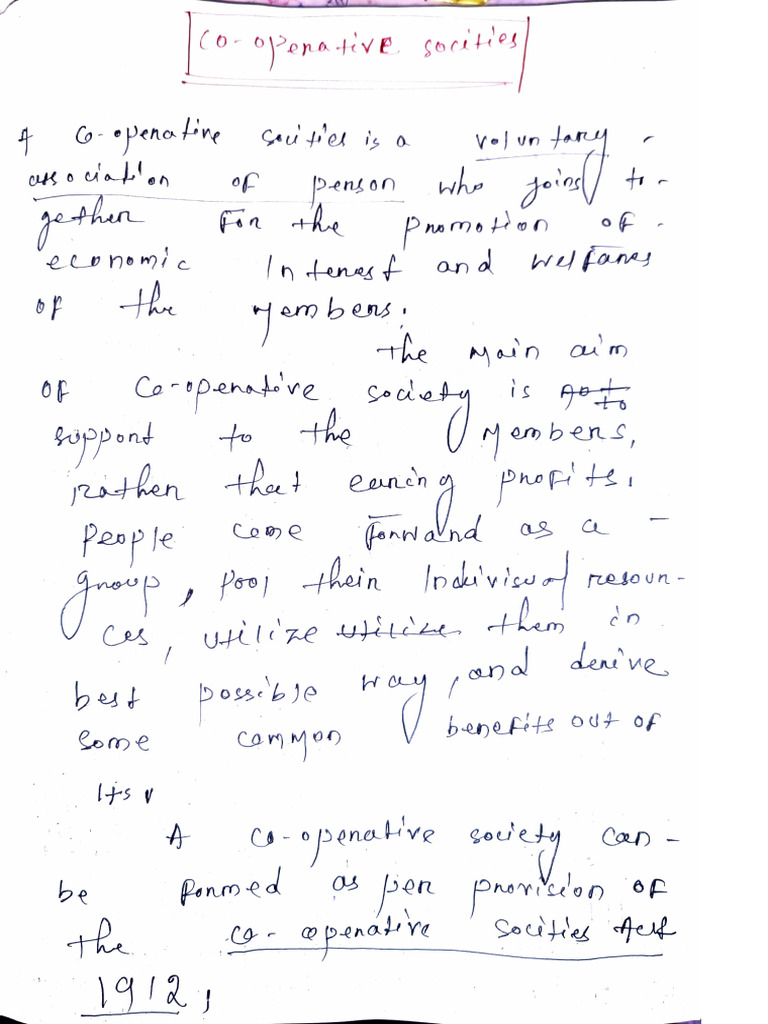 co-operative socities
A Co-operative socities is a voluntary -
association of person who joins to-
gether For the promotion of -
economic Interest and welfares
of the Members.
the main aim
of Co-operative society is
support to the Members,
rather that earing profits,
People come Forward as a -
group, Pool their Indivisual resour-
ces, utilize utilize them in
best possible way, and derive
some common benefits out of
Its
A co-operative society can -
be formed as per provision of
the co-operative socities Act
1912,